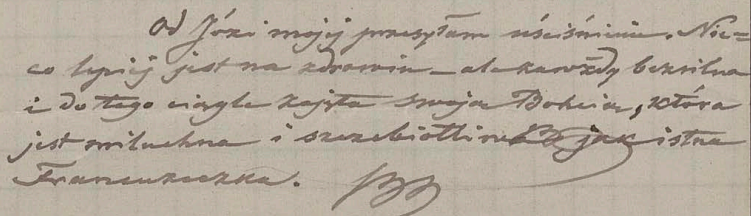 Od Józi mojej przesyłam uściśnienie. Nie=
co lepiej jest na zdrowiu – ale zawżdy bezsilna
i do tego ciągle zajęta swoją Bohcią, która
jest miluchna i szczebiotliwa jak istna
Francuzeczka.